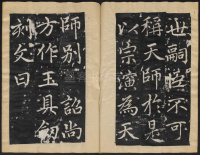 世嗣絕不可
稱天師於是
以宗演為天
師別詔尚
方作玉具劒
刻文曰